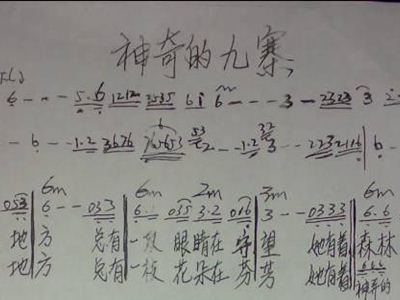 神奇的九寨
6 - - - 5·6 1212 3535 6i 6 - - - 3 - 2323 3
- 6 - - 1·2 3676 - 1·2 3 - - 2232116 | 6 -
6m 6m 2m 3m 6m
053 | 6 - - 033 | 6· 035 3·2 016 | 3 - - 0333 | 6·6
地 方 总有 一双 眼睛在 守 望 她有着 森林
地 方 总有 一枝 花朵在 芬 芳 她有着 神奇的